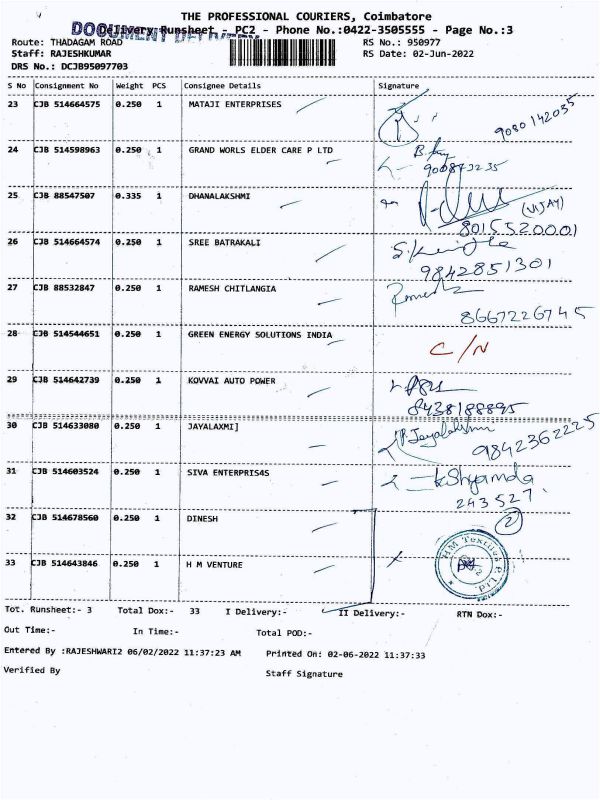 THE PROFESSIONAL COURIERS, Coimbatore
DOCUMENT DELIVERY
Delivery Runsheet - PC2 - Phone No.:0422-3505555 - Page No.:3
Route: THADAGAM ROAD RS No.: 950977
Staff: RAJESHKUMAR RS Date: 02-Jun-2022
DRS No.: DCJB95097703
S No Consignment No Weight PCS Consignee Details Signature
23 CJB 514664575 0.250 1 MATAJI ENTERPRISES
9080142035
24 CJB 514598963 0.250 1 GRAND WORLS ELDER CARE P LTD
900873235
25 CJB 88547507 0.335 1 DHANALAKSHMI
(VIJAY)
8015520001
26 CJB 514664574 0.250 1 SREE BATRAKALI
9842851301
27 CJB 88532847 0.250 1 RAMESH CHITLANGIA
8667226745
28 CJB 514544651 0.250 1 GREEN ENERGY SOLUTIONS INDIA
C/N
29 CJB 514642739 0.250 1 KOVVAI AUTO POWER
8438188895
30 CJB 514633080 0.250 1 JAYALAXMI]
P. Jayalakshmi
9842362225
31 CJB 514603524 0.250 1 SIVA ENTERPRIS4S
K Shyamala
243527
32 CJB 514678560 0.250 1 DINESH
2
33 CJB 514643846 0.250 1 H M VENTURE
HM Textiles P Ltd
Tot. Runsheet:- 3 Total Dox:- 33 I Delivery:- II Delivery:- RTN Dox:-
Out Time:- In Time:- Total POD:-
Entered By :RAJESHWARI2 06/02/2022 11:37:23 AM Printed On: 02-06-2022 11:37:33
Verified By Staff Signature